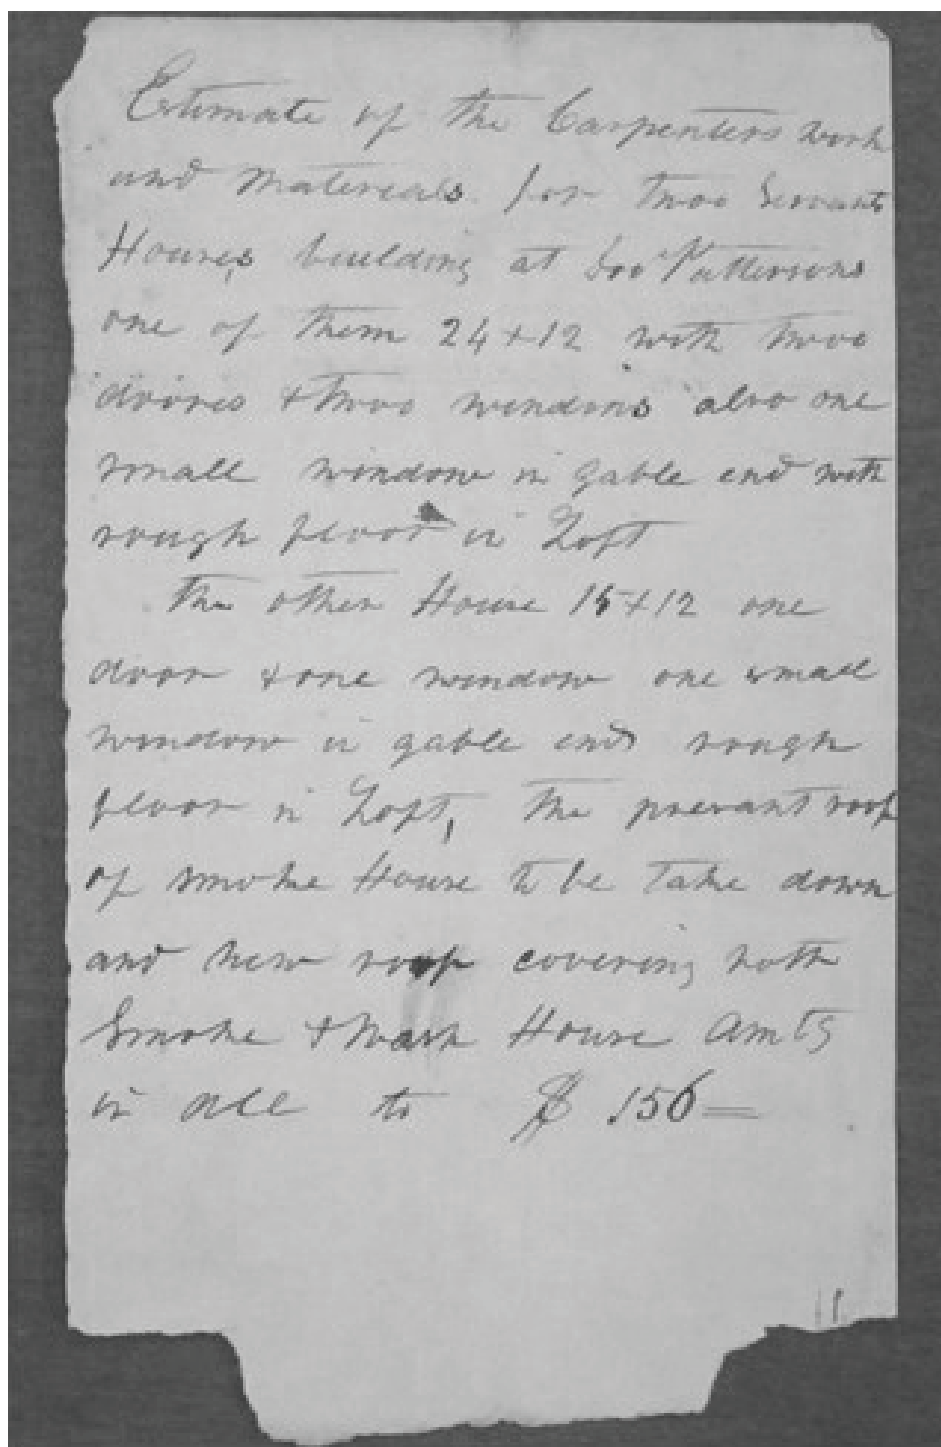 Estimate of the Carpenters work
and Materials for two Servants
Houses building at Doctr Pattersons
one of them 24+12 with two
doores + two windows also one
small window in gable end with
rough floor in Loft
The other House 15+12 one
door + one window one small
window in gable end rough
floor in Loft, the presant roof
of smoke House to be take down
and new roof covering both
Smoke + Wash House Amts
in all to $ 156=